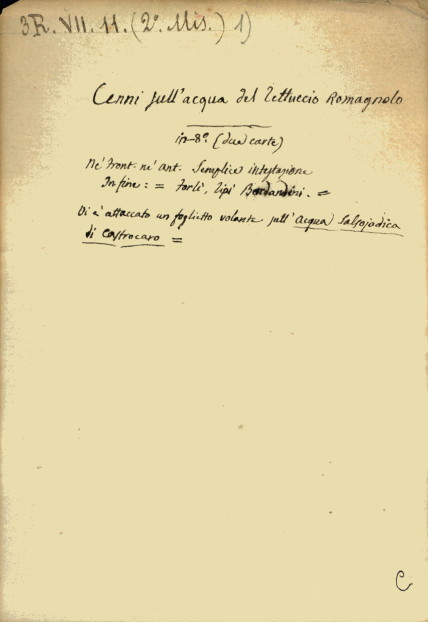 3R. VII. 11. (2º. Mis.) 1)
Cenni sull'acqua del Tettuccio Romagnolo
in-8º. (due carte)
Ne' Front. ne' Ant. Semplice intestazione
In fine: = Forlì, Tipi Bordandini. =
Vi è attaccato un foglietto volante sull' Acqua Salsojodica
di Castrocaro =
C